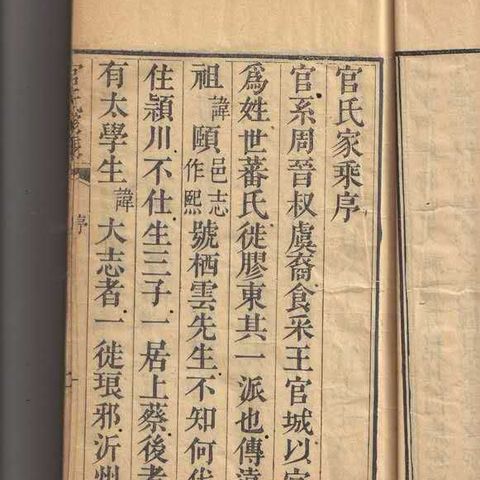 官氏家乘序
官系周晉叔虞裔食采王官城以
爲姓世蕃氏徙膠東其一派也傳
祖諱頤邑志作熙號栖雲先生不知何
住潁川不仕生三子一居上蔡後
有太學生諱大志者一徙琅邪沂州
序